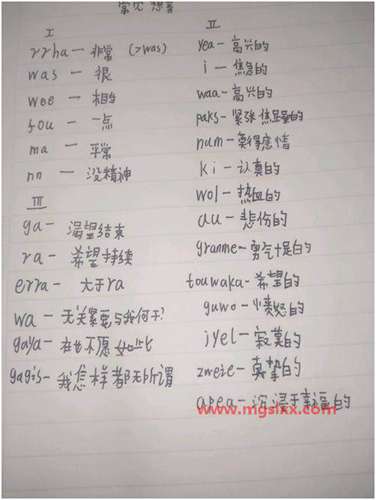 常见
I
rrha — 非常 (>was)
was — 很
wee — 相当
fou — 一点
ma — 平常
nn — 没精神
III
ga — 渴望结束
ra — 希望持续
erra — 大于ra
wa — 无关紧要与我何干?
gaya — 在也不愿如此
gagis — 我怎样都无所谓
II
yea — 高兴的
i — 焦急的
waa — 高兴的
paks — 紧张
num — 莫得感情
ki — 认真的
wol — 热血的
au — 悲伤的
granme — 勇气十足的
touwaka — 希望的
guwo — 愤怒的
jyel — 寂寞的
zweie — 真挚的
apea — 沉浸于幸福的
www.mgslxx.com